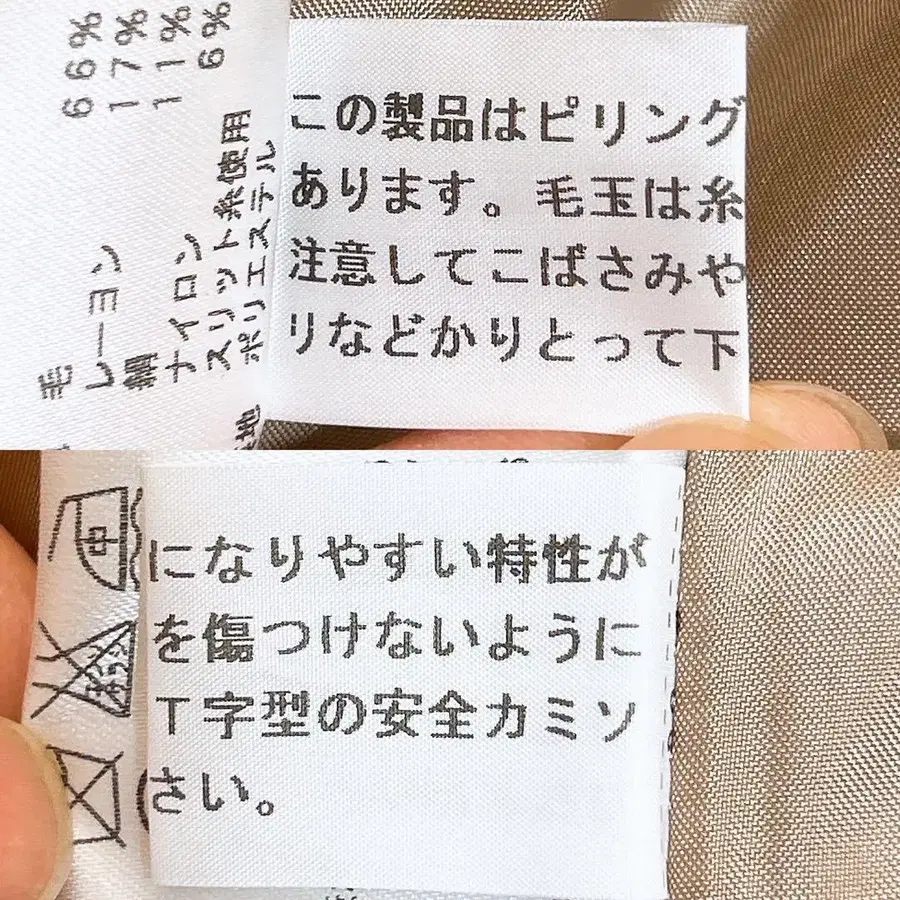 毛
66%
レーヨン
17%
綿
11%
ナイロン
6%
スリット糸使用
ポリエステル
地
この製品はピリング
あります。毛玉は糸
注意してこばさみや
リなどかりとって下
中
になりやすい特性が
を傷つけないように
T字型の安全カミソ
さい。
エンソ
サラシ